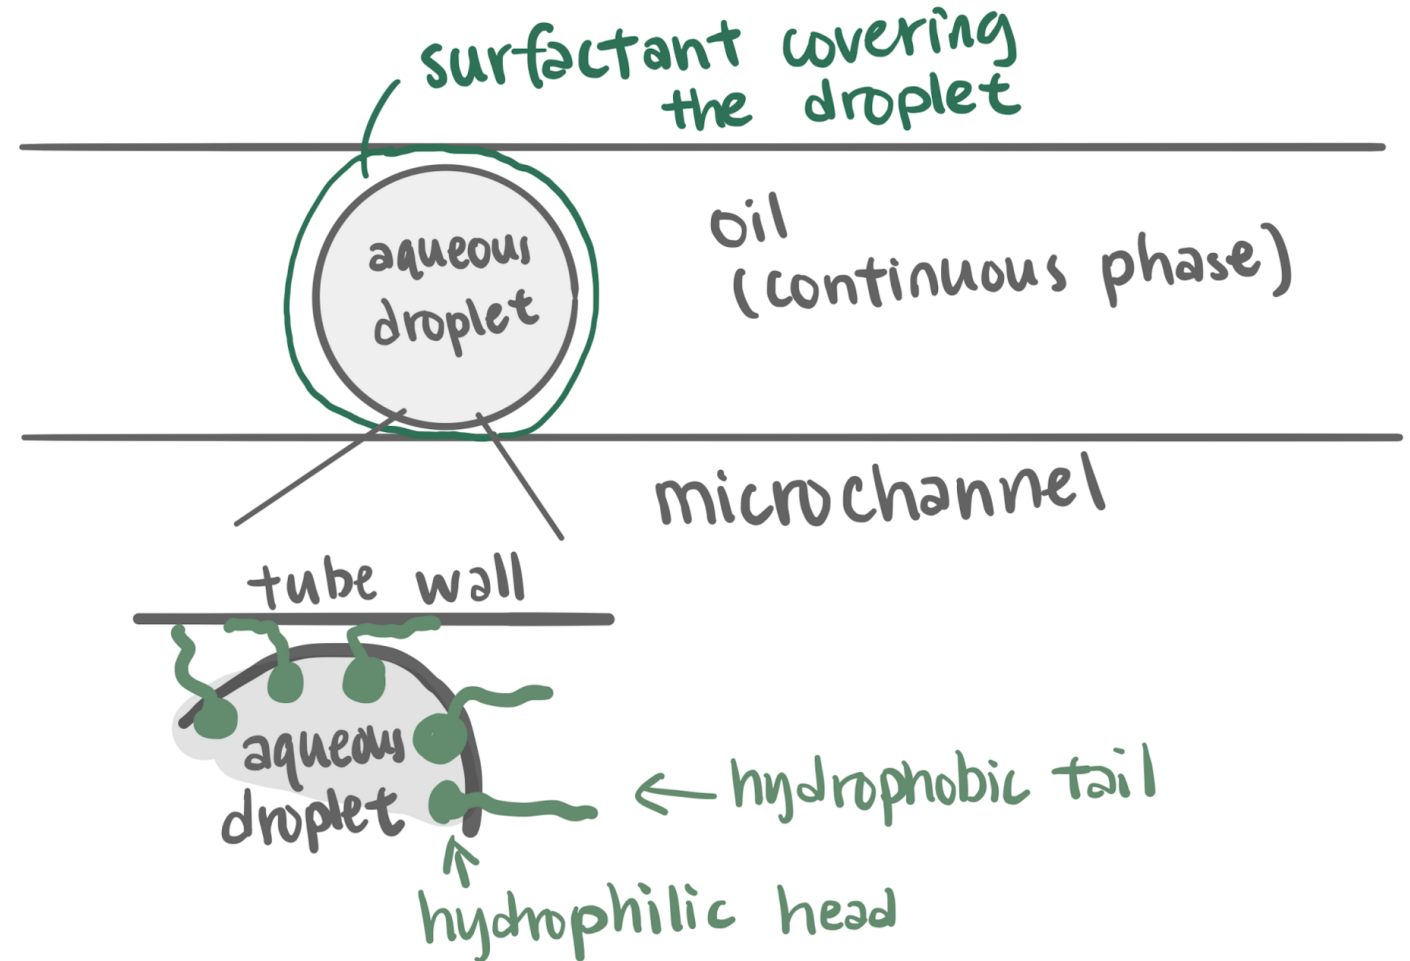 surfactant covering
the droplet
aqueous
droplet
oil
(continuous phase)
microchannel
tube wall
aqueous
droplet
← hydrophobic tail
hydrophilic head